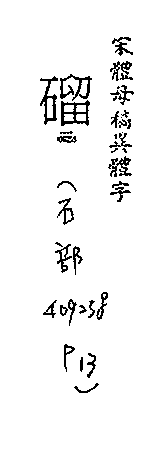 宋體母稿異體字
磂
（石部
409258
P13）